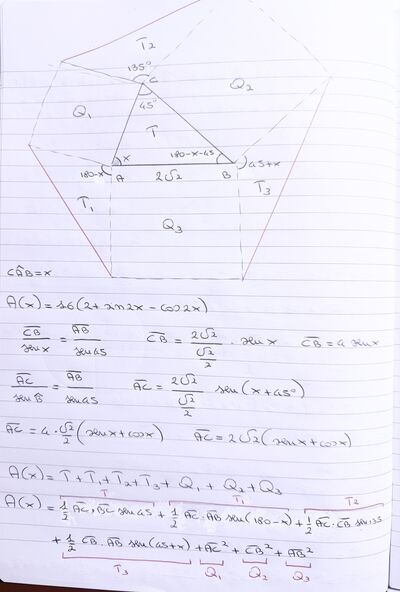 T2
135°
C
Q1
Q2
45°
T
x
180-x-45
45+x
180-x
A
2√2
B
T1
T3
Q3
CÂB=x
A(x)=16(2+sen2x-cos2x)
CB/senx = AB/sen45 CB = 2√2/(√2/2) · senx CB=4 senx
AC/senB̂ = AB/sen45 AC = 2√2/(√2/2) sen(x+45°)
AC=4·√2/2(senx+cosx) AC=2√2(senx+cosx)
A(x)=T+T1+T2+T3+Q1+Q2+Q3
T T1 T2
A(x)=1/2 AC·BC sen45+1/2 AC·AB sen(180-x)+1/2 AC·CB sen135
+1/2 CB·AB sen(45+x)+AC²+CB²+AB²
T3 Q1 Q2 Q3